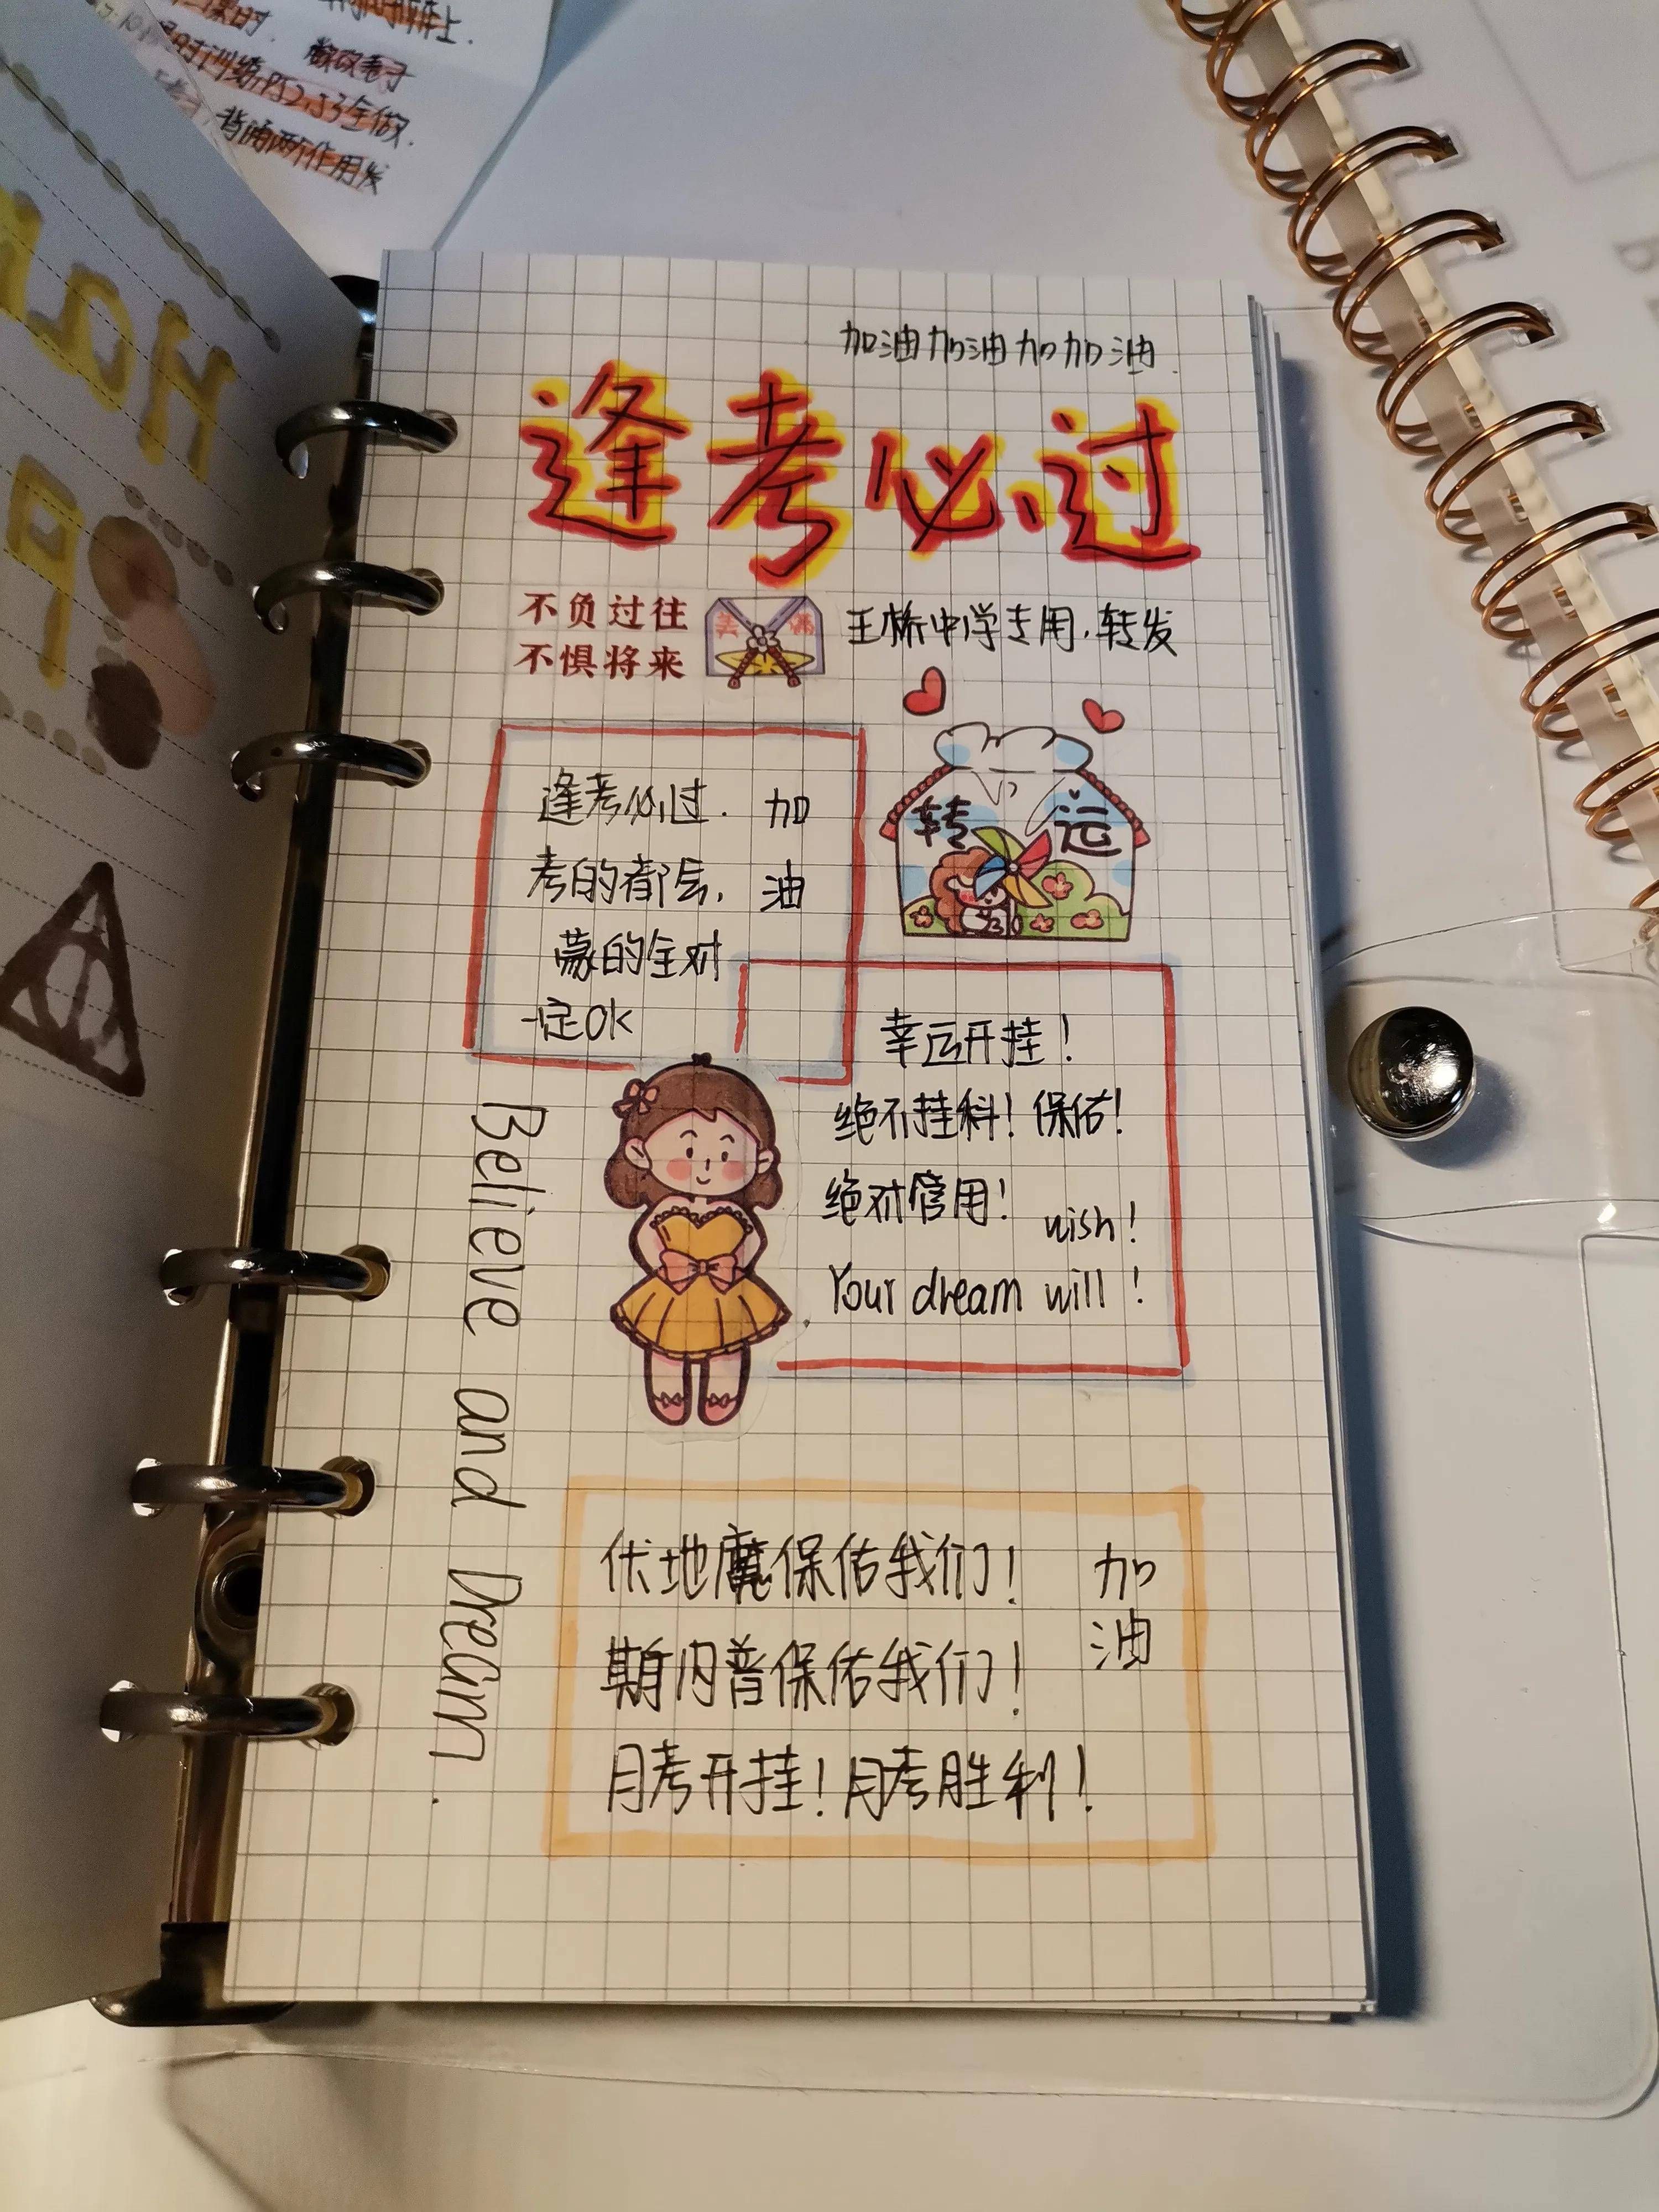 做改卷子
时训练P52,53全做.
背诵两个作用发
HaP
P
加油加油加加油.
逢考必过
不负过往
不惧将来
王桥中学专用,转发
逢考必过. 加
考的都会, 油
蒙的全对
一定OK
转运
幸运开挂!
绝不挂科! 保佑!
绝对管用! wish!
Your dream will!
Believe and Dream.
伏地魔保佑我们! 加
油
斯内普保佑我们!
月考开挂! 月考胜利!